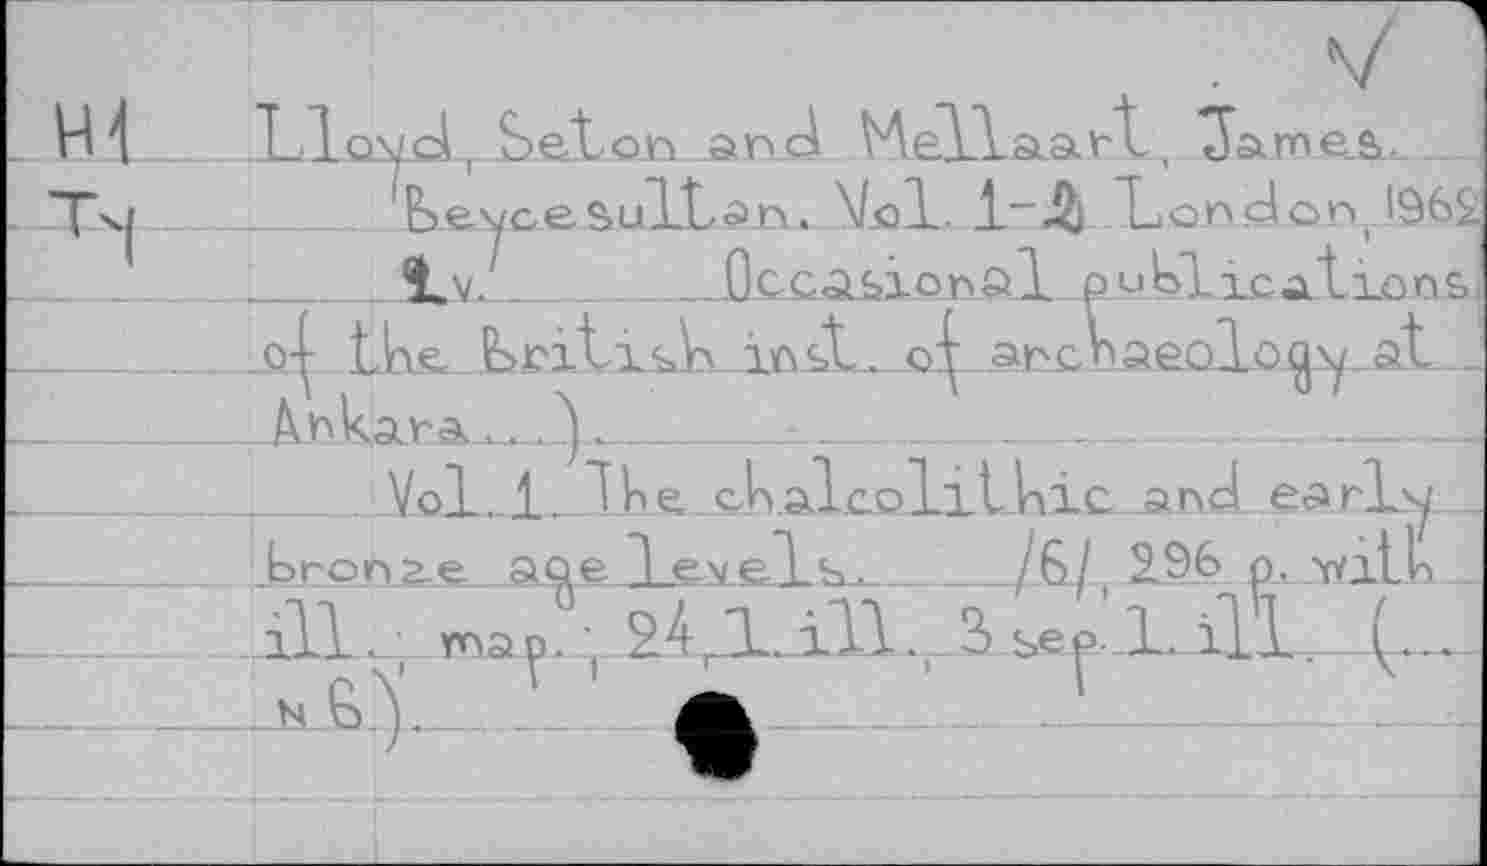 √
H1 Lloyd, Seton and Mellaart, James.
Ty Beycesultan. Vol. 1- London, 1962
v. Occasional publications
of the British inst. of archaeology at
Ankara...).
Vol. 1. The chalcolithic and early
bronze age levels. /6/, 296 p. with
ill.; map.; 24 l. ill., 3 sep. l. ill. (...
N 6).